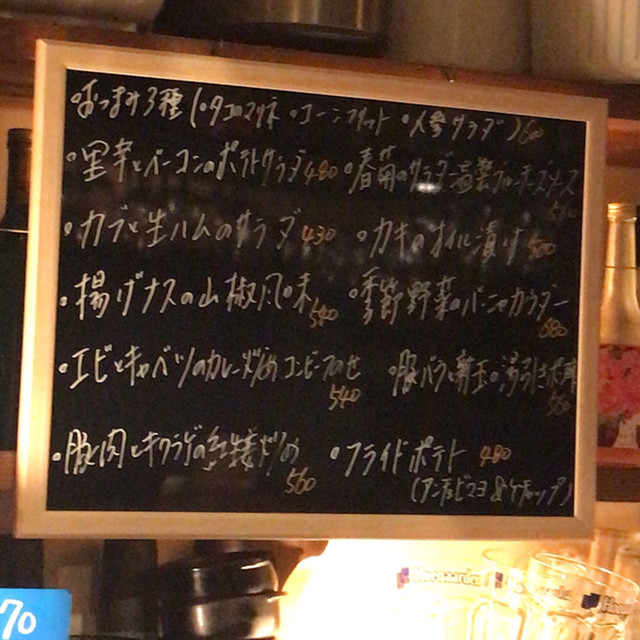 ・おつまみ3種(・タコのマリネ ・コーンフリット ・人参サラダ)600
・里芋とベーコンのポテトサラダ 480
・春菊のサラダ 温製ブルーチーズソース
・カブと生ハムのサラダ 430
・カキのオイル漬け 500
・揚げナスの山椒風味 540
・季節野菜のバーニャカウダー 680
・エビとキャベツのカレー炒め コンビーフのせ 540
・豚バラと新玉の湯引きポン酢 560
・豚肉とキクラゲの豆鼓炒め 560
・フライドポテト 480
(アンチョビマヨ&ケチャップ)
Hoegaarden
70